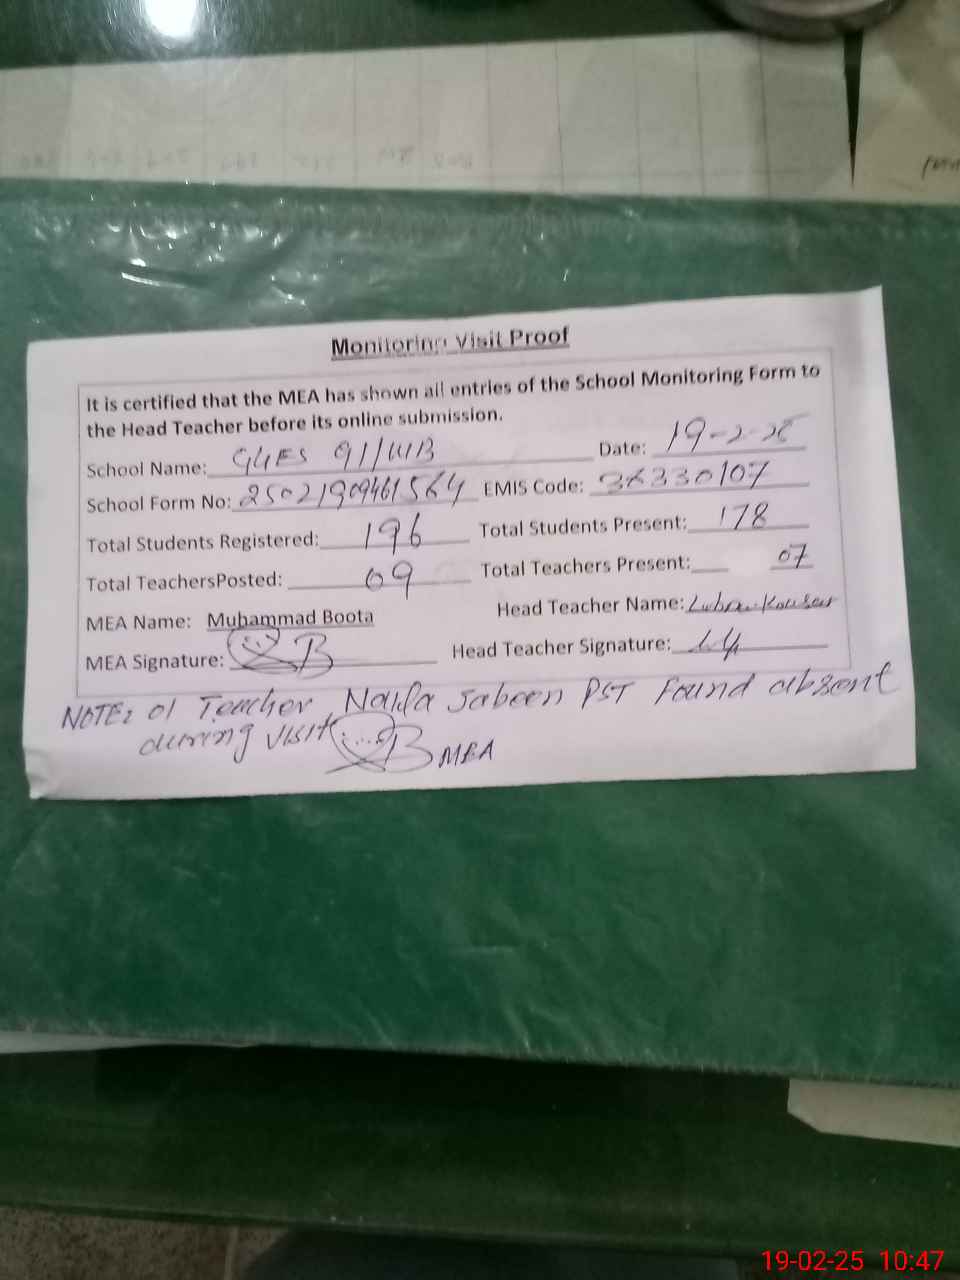 Monitoring Visit Proof
It is certified that the MEA has shown all entries of the School Monitoring Form to
the Head Teacher before its online submission.
School Name: GGES 91/WB Date: 19-2-25
School Form No: 25021909461564 EMIS Code: 36330107
Total Students Registered: 196 Total Students Present: 178
Total TeachersPosted: 09 Total Teachers Present: 07
MEA Name: Muhammad Boota Head Teacher Name: Lubna Kousar
MEA Signature: Head Teacher Signature:
NOTE: 01 Teacher Naila Jabeen PST Found absent
during visit MEA
19-02-25 10:47